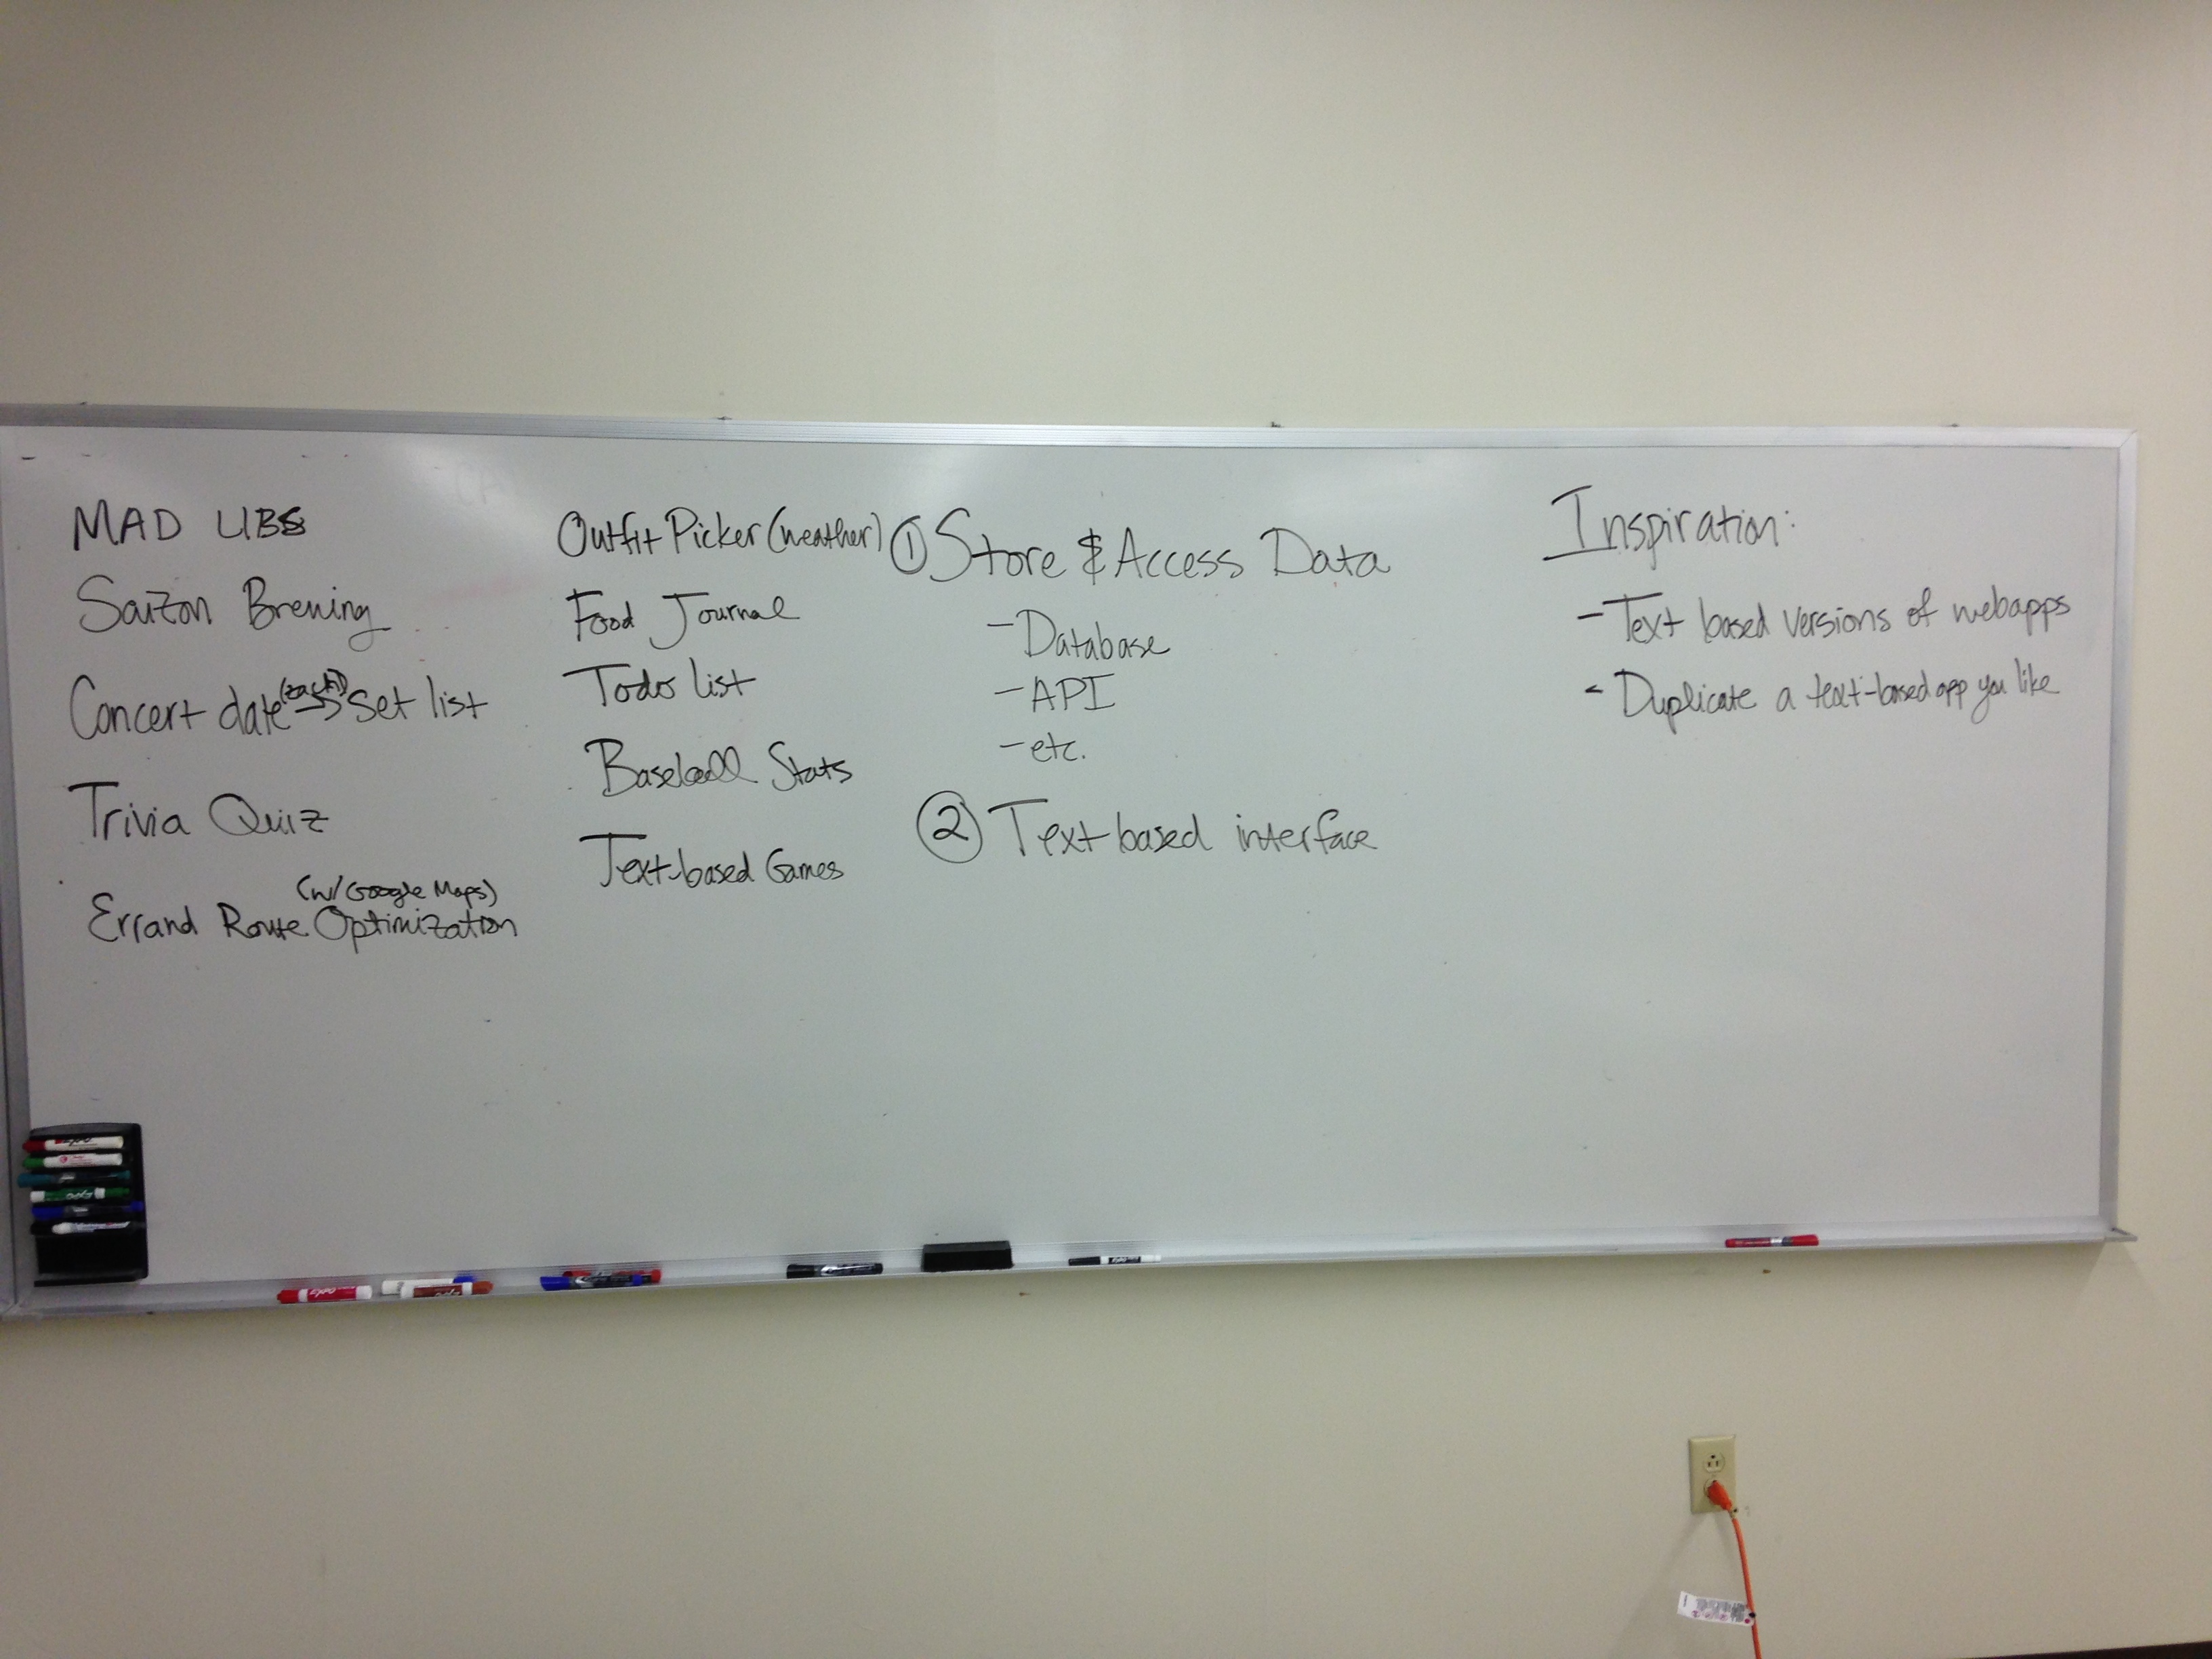 MAD LIBS
Saizon Brewing
Concert date → Set list
Trivia Quiz
(w/ Google Maps)
Errand Route Optimization
Outfit Picker (weather)
Food Journal
Todo list
Baseball Stats
Text-based Games
① Store & Access Data
- Database
- API
- etc.
② Text based interface
Inspiration:
- Text based versions of webapps
- Duplicate a text-based app you like